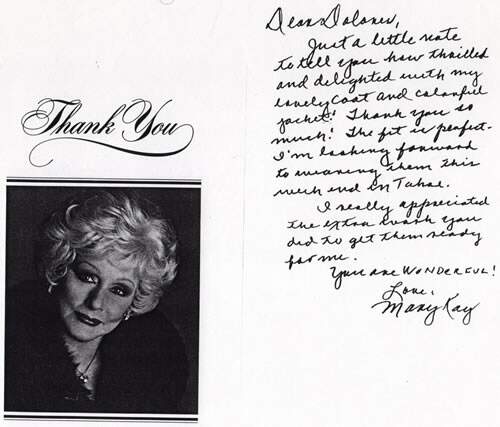 Thank You
Dear Dolores,
Just a little note
to tell you how thrilled
and delighted with my
lovely coat and colorful
jacket! Thank you so
much! The fit is perfect.
I'm looking forward
to wearing them this
week end in Tahoe.
I really appreciated
the extra work you
did to get them ready
for me.
You are WONDERFUL!
Love,
Mary Kay